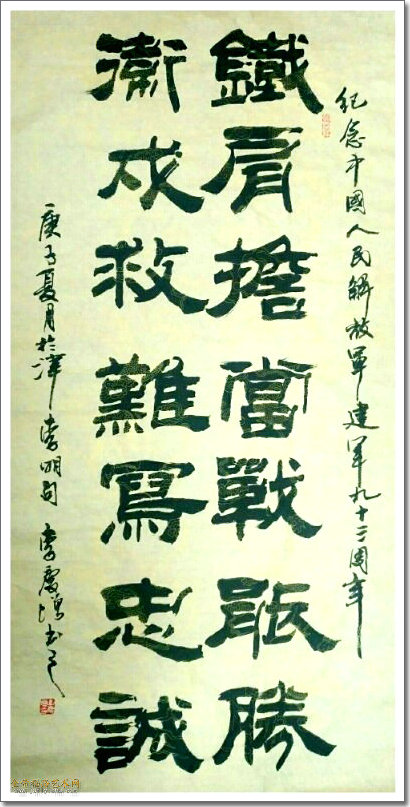 紀念中國人民解放軍建軍九十三周年
鐵肩擔當戰勝
衛戍救難寫忠誠
庚子夏月於津 李明句 李慶书